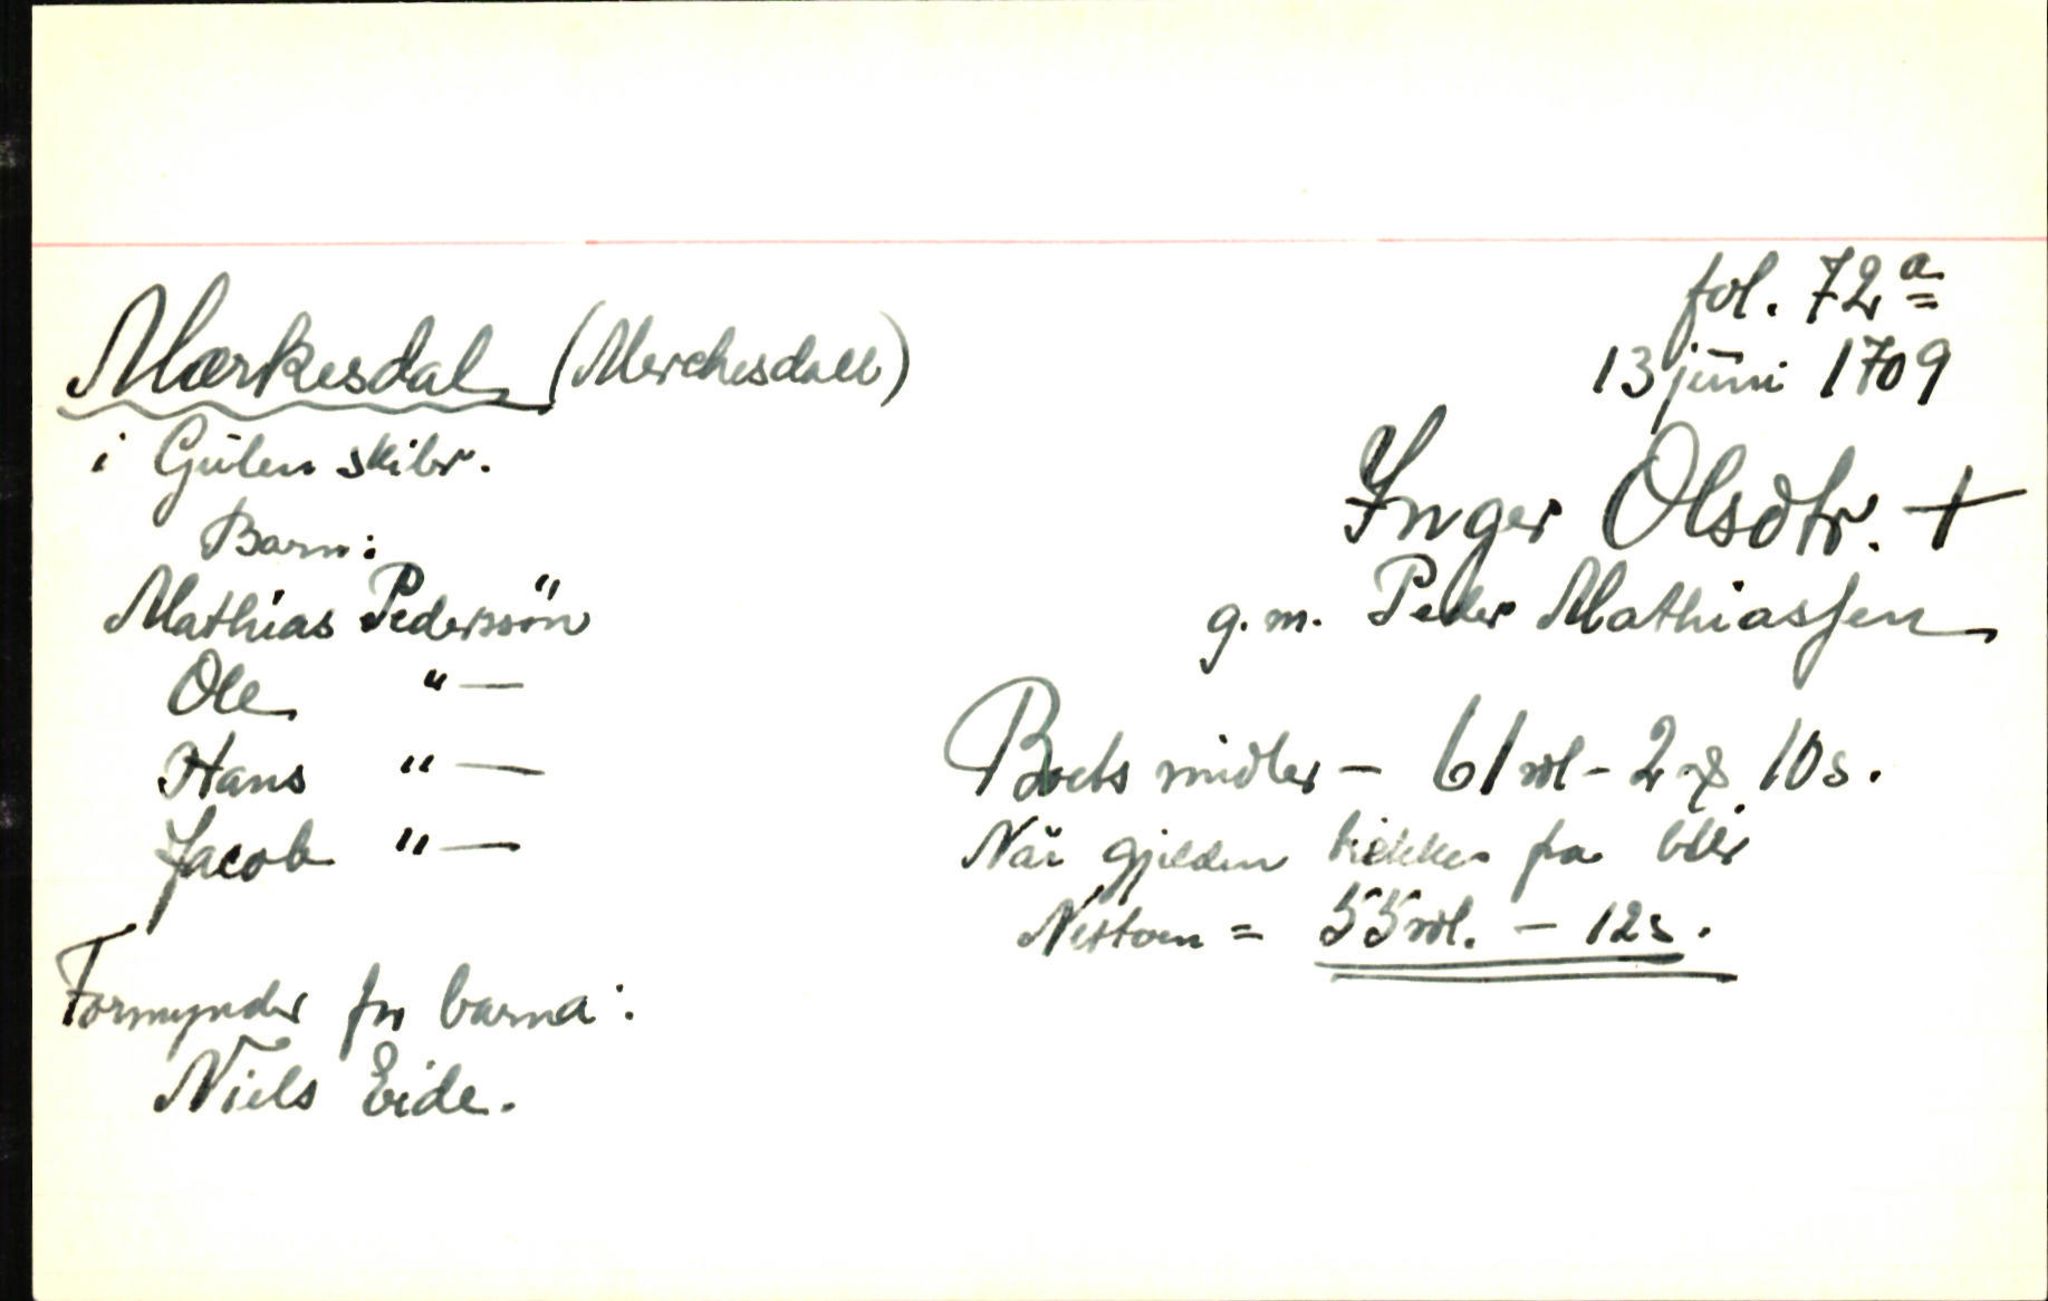 fol. 72 a
Mærkesdal (Merchesdall)
13 juni 1709
i Gulen skibr.
Inger Olsdtr. +
Barn:
g.m. Peder Mathiassen
Mathias Pederssön
Ole " —
Hans " —
Jacob " —
Boets midler – 61 rdl – 2 ℳ 10 s.
Når gjelden trekkes fra blir
Nettoen = 55 rdl. – 12 s.
Formynder for barna:
Niels Eide.